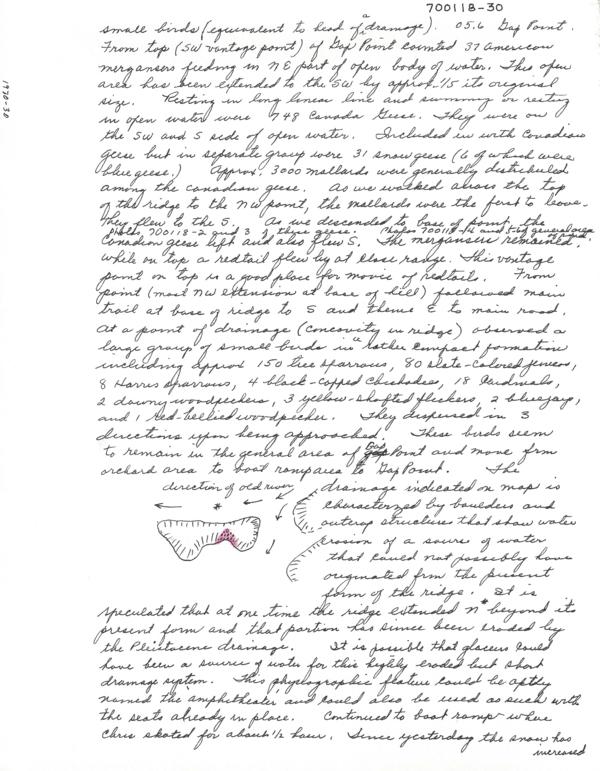 700118-30
1970-30
small birds (equivalent to head of a drainage). 05.6 Gap Point.
From top (SW vantage point) of Gap Point counted 37 american
mergansers feeding in NE part of open body of water. This open
area has been extended to the SW by approx. 1/5 its original
size. Resting in long linear line and swimming or resting
in open water were 748 Canada Geese. They were on
the SW and S side of open water. Included in with Canadian
geese but in separate group were 31 snow geese (6 of which were
blue geese.) Approx. 3000 mallards were generally distributed
among the canadian geese. As we walked across the top
of the ridge to the NW point, the mallards were the first to leave.
They flew to the S. As we descended to base of point, the
Photos 700118-2 and 3 of these geese. Photos 700118-4 and 5 of general area
Canadian geese left and also flew S. The mergansers remained.
While on top a redtail flew by at close range. This vantage
point on top is a good place for movie of redtail. From
point (most NW extension at base of hill) followed main
trail at base of ridge to S and thence E to main road.
At a point of drainage (concavity in ridge) observed a
large group of small birds in a rather compact formation
including approx 150 tree sparrows, 80 slate-colored juncos,
8 Harris sparrows, 4 black-capped chickadees, 18 Cardinals,
2 downy woodpeckers, 3 yellow-shafted flickers, 2 bluejays,
and 1 red-bellied woodpecker. They dispersed in 3
directions upon being approached. These birds seem
to remain in the general area of Gap Point and move from
orchard area to boat ramp area to Gap Point. The
direction of old river
*
drainage indicated on map is
characterized by boulders and
outcrop structures that show water
erosion of a source of water
that could not possibly have
originated from the present
form of the ridge. It is
speculated that at one time the ridge extended N* beyond its
present form and that portion has since been eroded by
the Pleistocene drainage. It is possible that glaciers could
have been a source of water for this highly eroded but short
drainage system. This physiographic feature could be aptly
named the amphitheater and could also be used as such with
the seats already in place. Continued to boat ramp where
Chris skated for about 1/2 hour. Since yesterday the snow has
increased